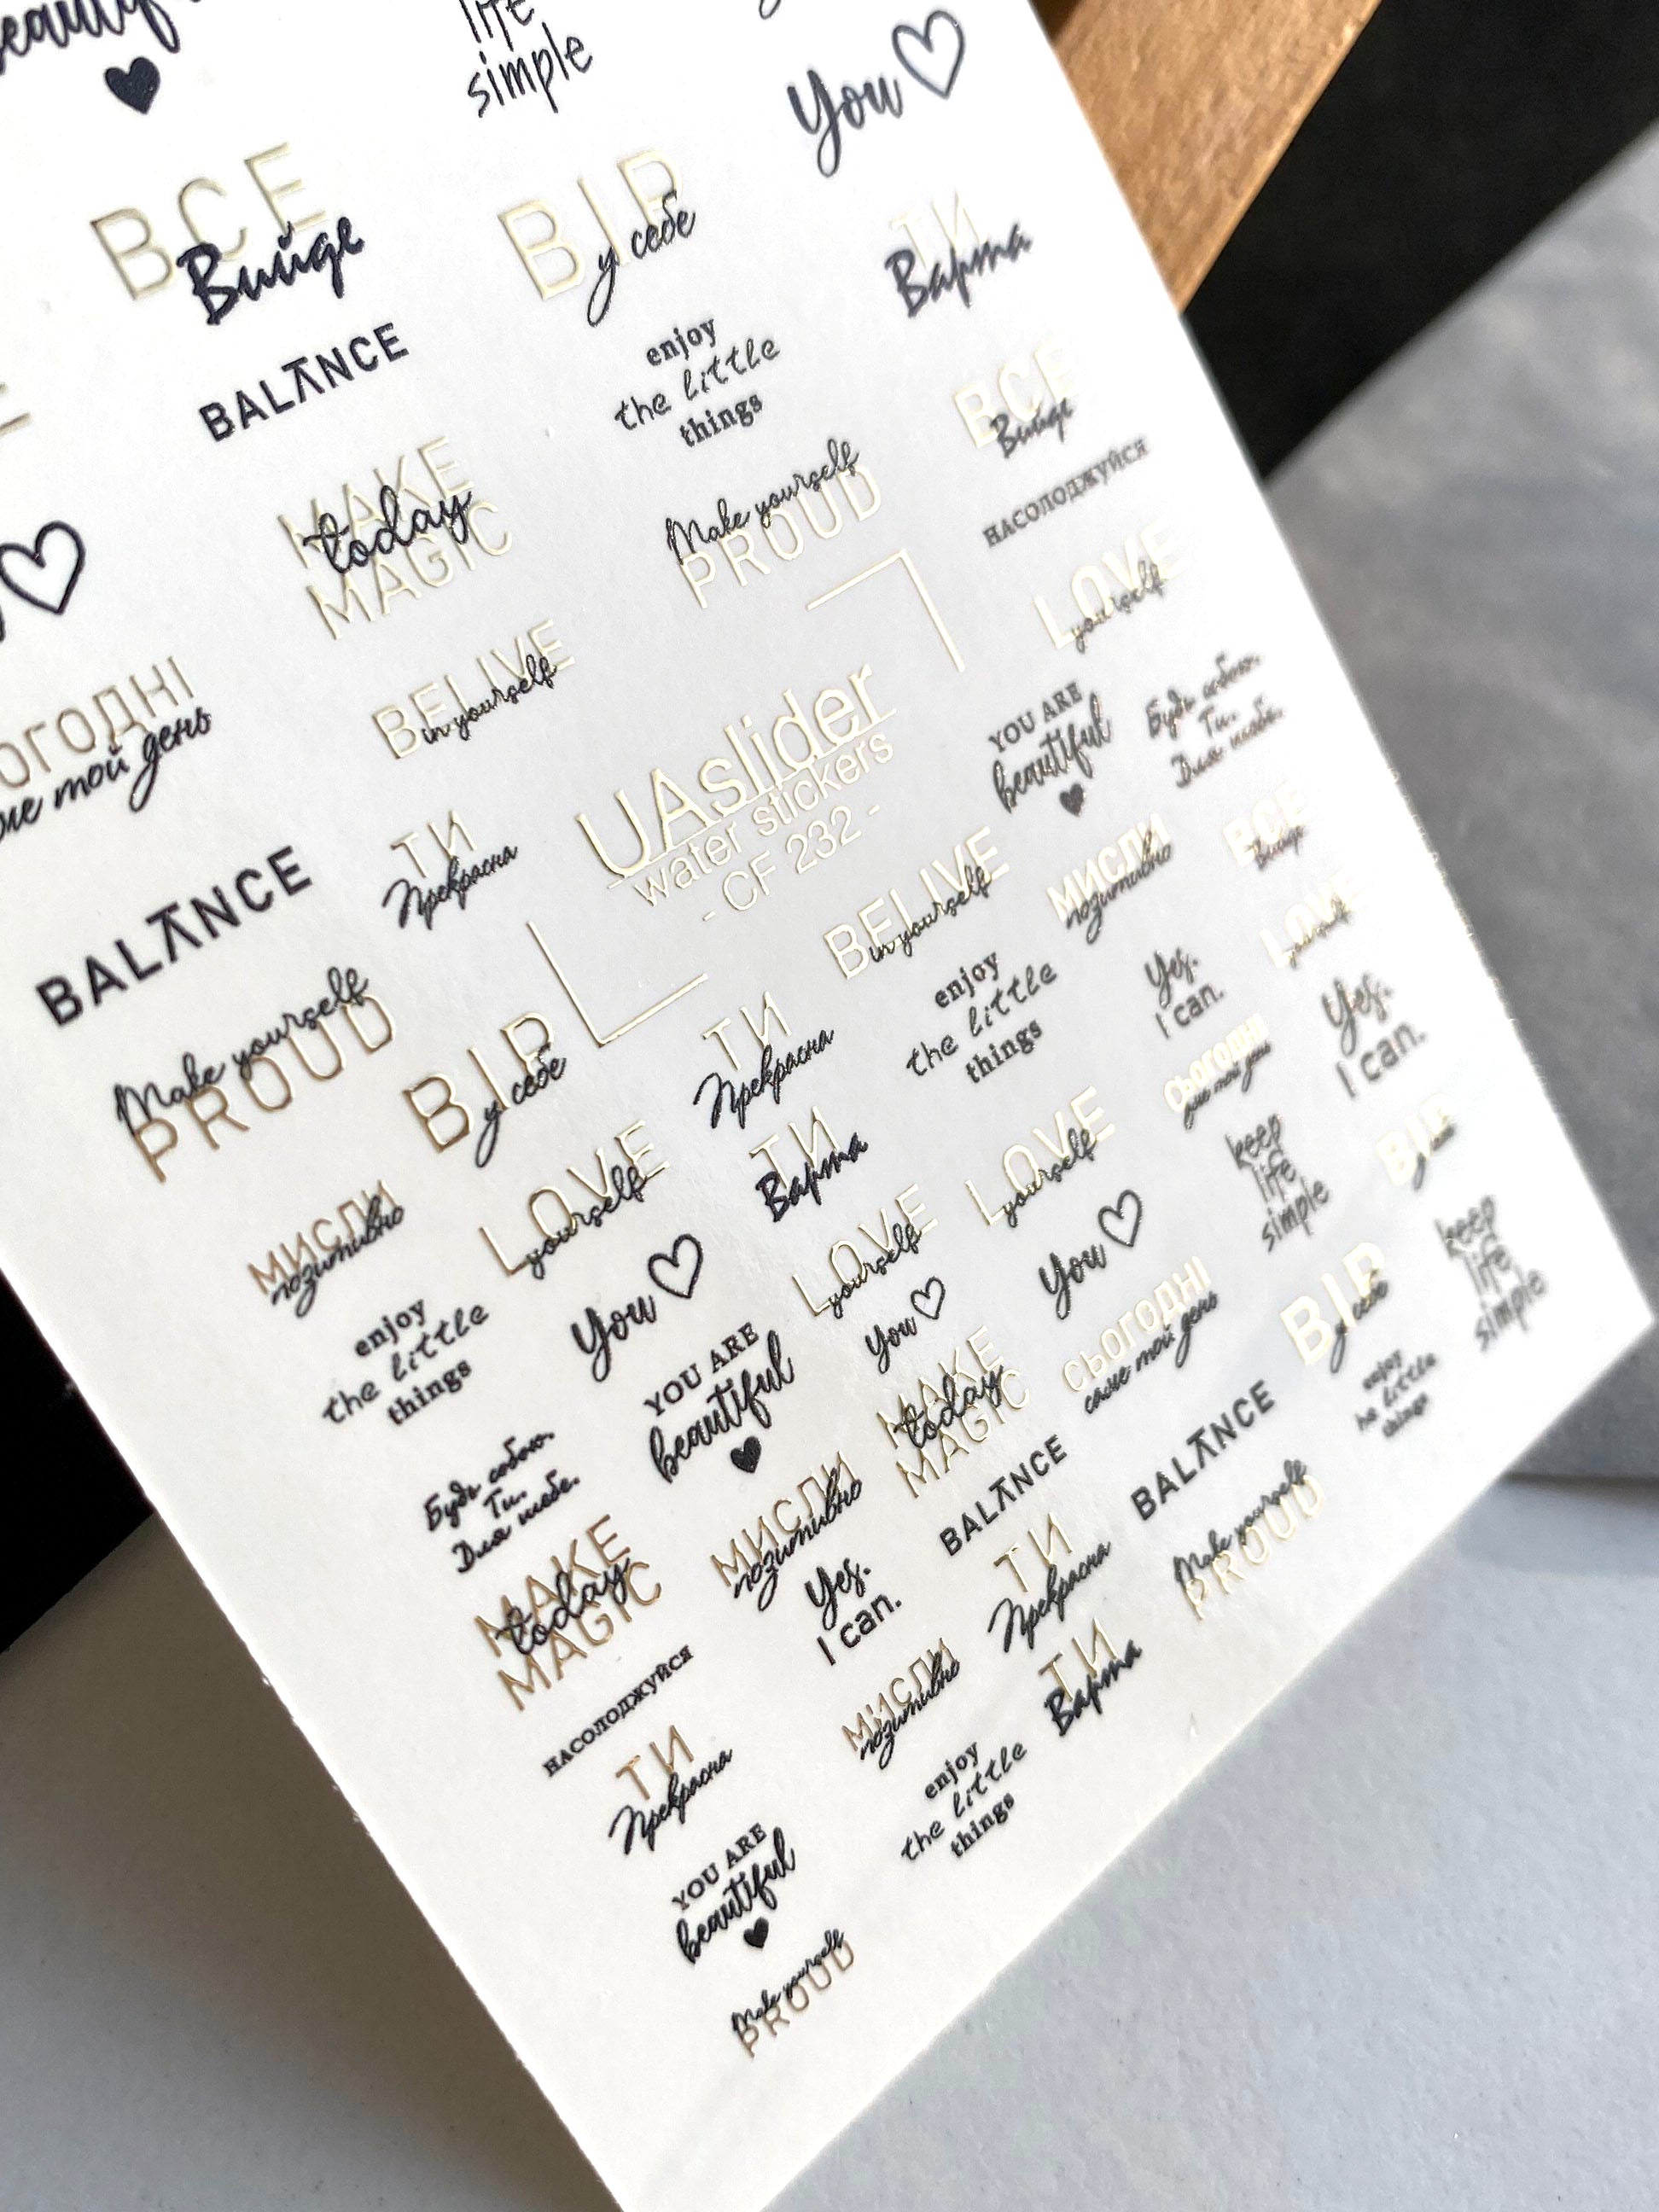 life
simple
You
ВСЕ
Вийде
ВІР
у себе
ТИ
Варта
BALANCE
enjoy
the little
things
ВСЕ
Вийде
MAKE
today
MAGIC
Make yourself
PROUD
НАСОЛОДЖУЙСЯ
LOVE
yourself
BELIVE
in yourself
мой день
UAslider
water stickers
- CF 232 -
YOU ARE
beautiful
Будь собою.
Ти.
Для тебе.
BALANCE
ТИ
Прекрасна
BELIVE
in yourself
МИСЛИ
позитивно
ВСЕ
Вийде
Make yourself
PROUD
ВІР
у себе
ТИ
Прекрасна
enjoy
the little
things
Yes.
I can.
LOVE
yourself
МИСЛИ
позитивно
LOVE
yourself
ТИ
Варта
LOVE
yourself
СЬОГОДНІ
саме мой день
Yes.
I can.
enjoy
the little
things
You
LOVE
yourself
You
keep
life
simple
ВІР
у себе
Будь собою.
Ти.
Для тебе.
YOU ARE
beautiful
You
СЬОГОДНІ
саме мой день
ВІР
у себе
keep
life
simple
MAKE
today
MAGIC
МИСЛИ
позитивно
MAKE
today
MAGIC
BALANCE
BALANCE
enjoy
the little
things
НАСОЛОДЖУЙСЯ
Yes.
I can.
ТИ
Прекрасна
Make yourself
PROUD
ТИ
Прекрасна
МИСЛИ
позитивно
ТИ
Варта
YOU ARE
beautiful
enjoy
the little
things
Make yourself
PROUD